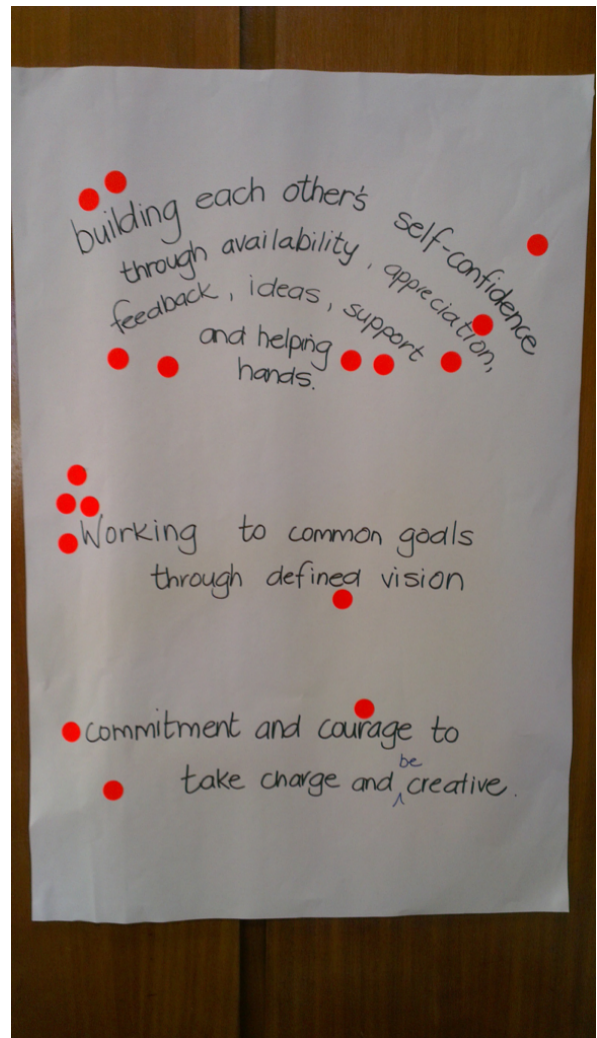 building each other's self-confidence
through availability, appreciation,
feedback, ideas, support
and helping
hands.
Working to common goals
through defined vision
commitment and courage to
take charge and be creative.